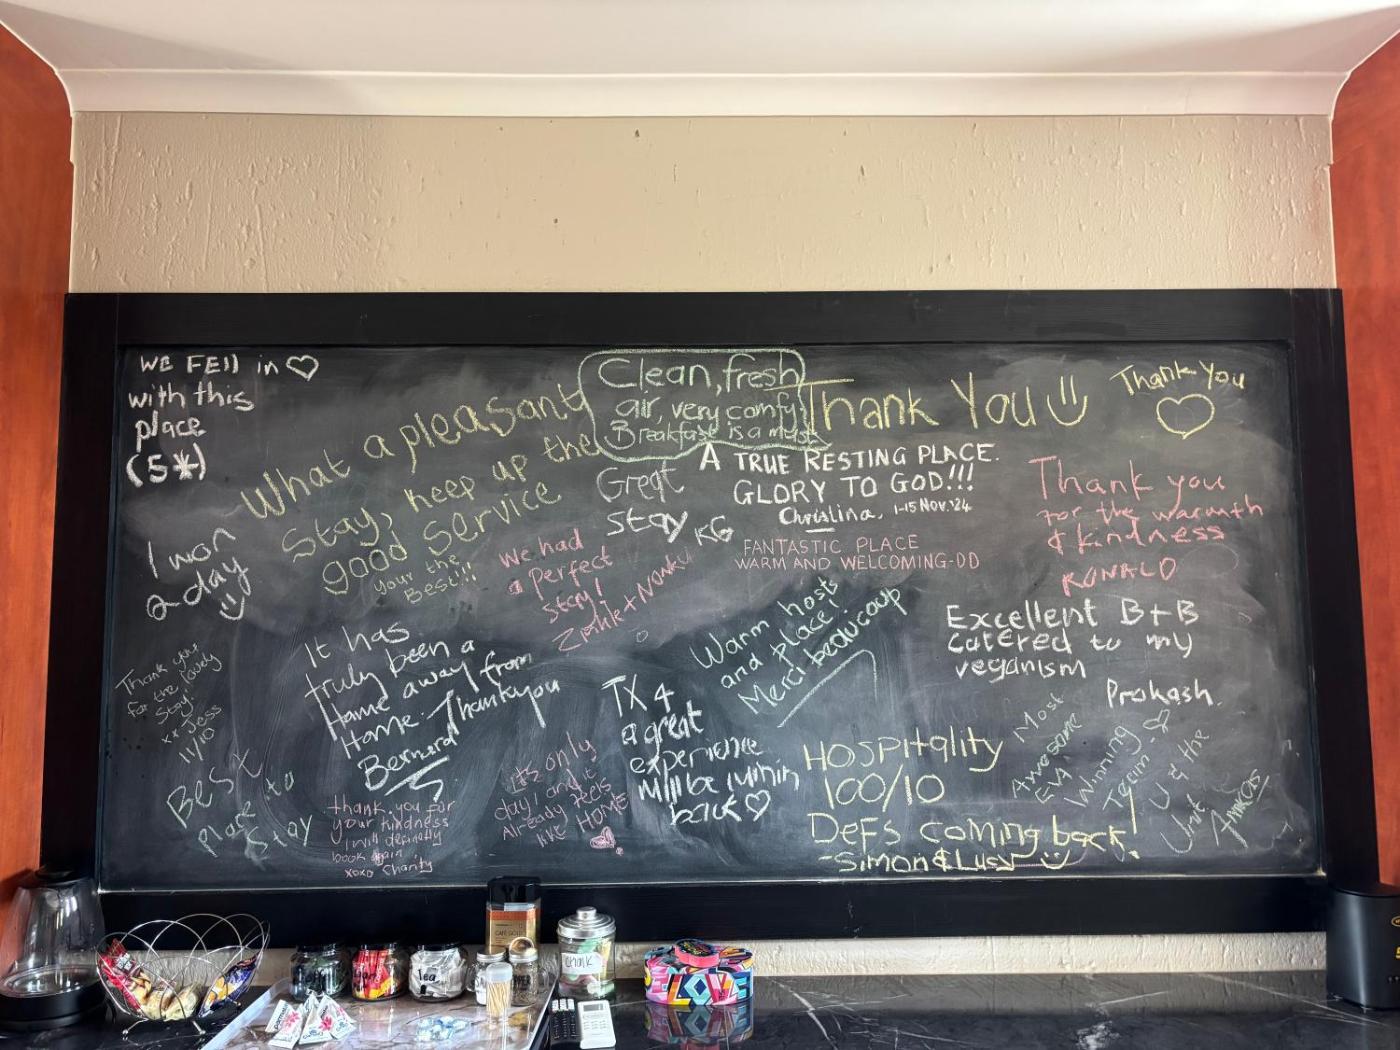 WE FEll in ♡
with this
place
(5*)
I won
a day
Thank you
for the lovely
stay
xx Jess
11/10
Best
place to
stay
What a pleasant
stay, keep up the
good service
your the
Best!!!
Clean, fresh
air, very comfy
Breakfast is a must
Great
stay KG
Thank You
Thank You
♡
A TRUE RESTING PLACE.
GLORY TO GOD!!!
Christina, 1-15 Nov. '24
FANTASTIC PLACE
WARM AND WELCOMING-DD
Thank you
for the warmth
& kindness
RONALD
we had
a Perfect
stay!
It has
truly been a
Home away from
Home. Thank you
Bernard
thank you for
your kindness
I will definitely
book again
xoxo Charity
its only
day1 and it
Already feels
like HOME
TX 4
a great
experience
back ♡
Warm hosts
and place!
Merci beaucoup
Excellent B+B
catered to my
veganism
Prakash.
HOSPITALITY
100/10
DEFS coming back!
-Simon & Lucy
Most
Awesome
EVA
Winning
Team ♡
U & the
Unit
Coffee
Sugar
Tea
chalk
CAFÉ GOLD
LOVE